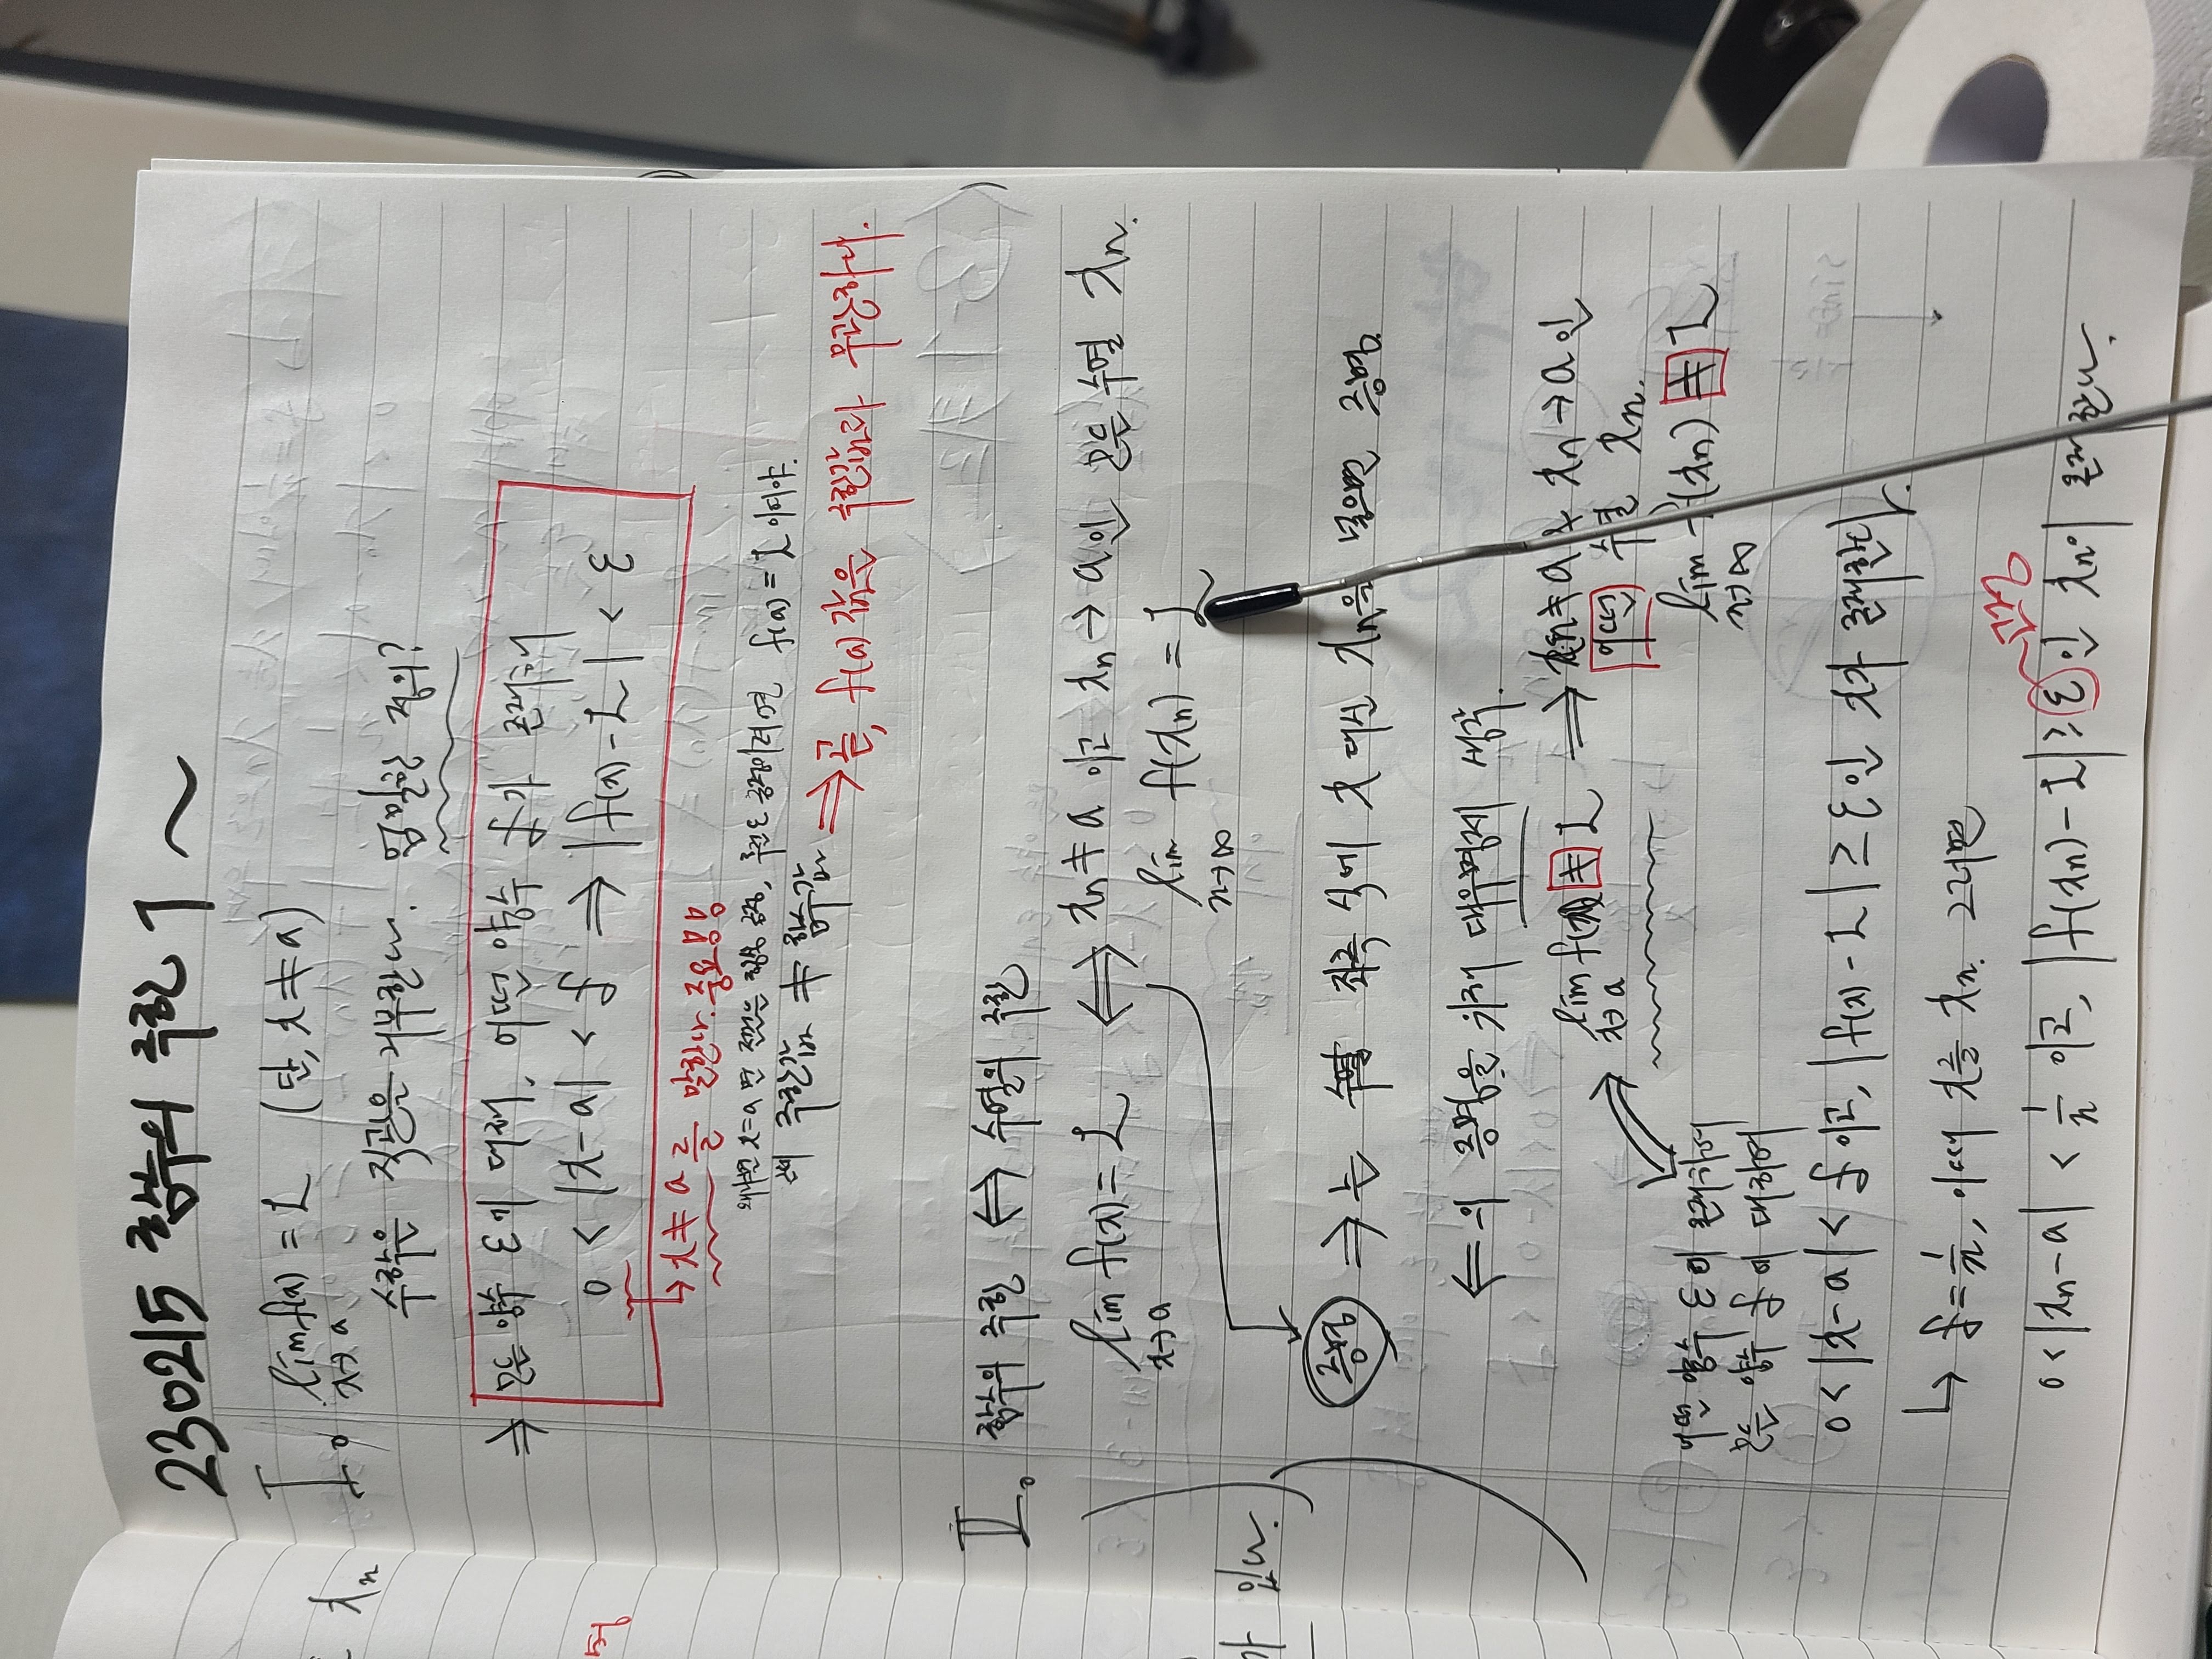 230215 함수의 극한 1 ~
I. lim f(x) = L (단, x ≠ a)
x→a
수학은 직관을 거부한다. 엄밀한 정의?
⇒ 모든 양수 ε에 대해, 어떤 양수 δ가 존재해
0 < |x-a| < δ ⇒ |f(x)-L| < ε
↳ x ≠ a 를 말한다. 중요
왜냐면 x=a 면 전건은 항상 긍정, 후건도 긍정이려면 f(a) = L 이어야.
근데 극한값 ≠ 함수값 ⇒ 곧, f(a) 값은 극한값과 무관하다.
II. 함수의 극한 ⇔ 수열의 극한
lim f(x) = L ⇔ xn ≠ a 이고 xn → a인 모든 수열 xn.
x→a
lim f(xn) = L
n→∞
증명 ⇒ 는 좌측 식에 x 대신 xn을 넣으면 증명.
⇐ 의 증명을 위해 대우명제 생각.
lim f(x) ≠ L ⇒ xn ≠ a & xn → a 인
x→a
어떤 수열 xn.
lim f(xn) ≠ L
n→∞
어떤 양수 ε이 존재하여
모든 양수 δ에 대하여
0 < |x-a| < δ 이고, |f(x)-L| ≥ ε인 x가 존재한다.
↳ δ = 1/n, 이때 x를 xn. 그러면
고정
0 < |xn-a| < 1/n 이고, |f(xn)-L| ≥ ε인 xn이 존재한다.
xn
가 있다.